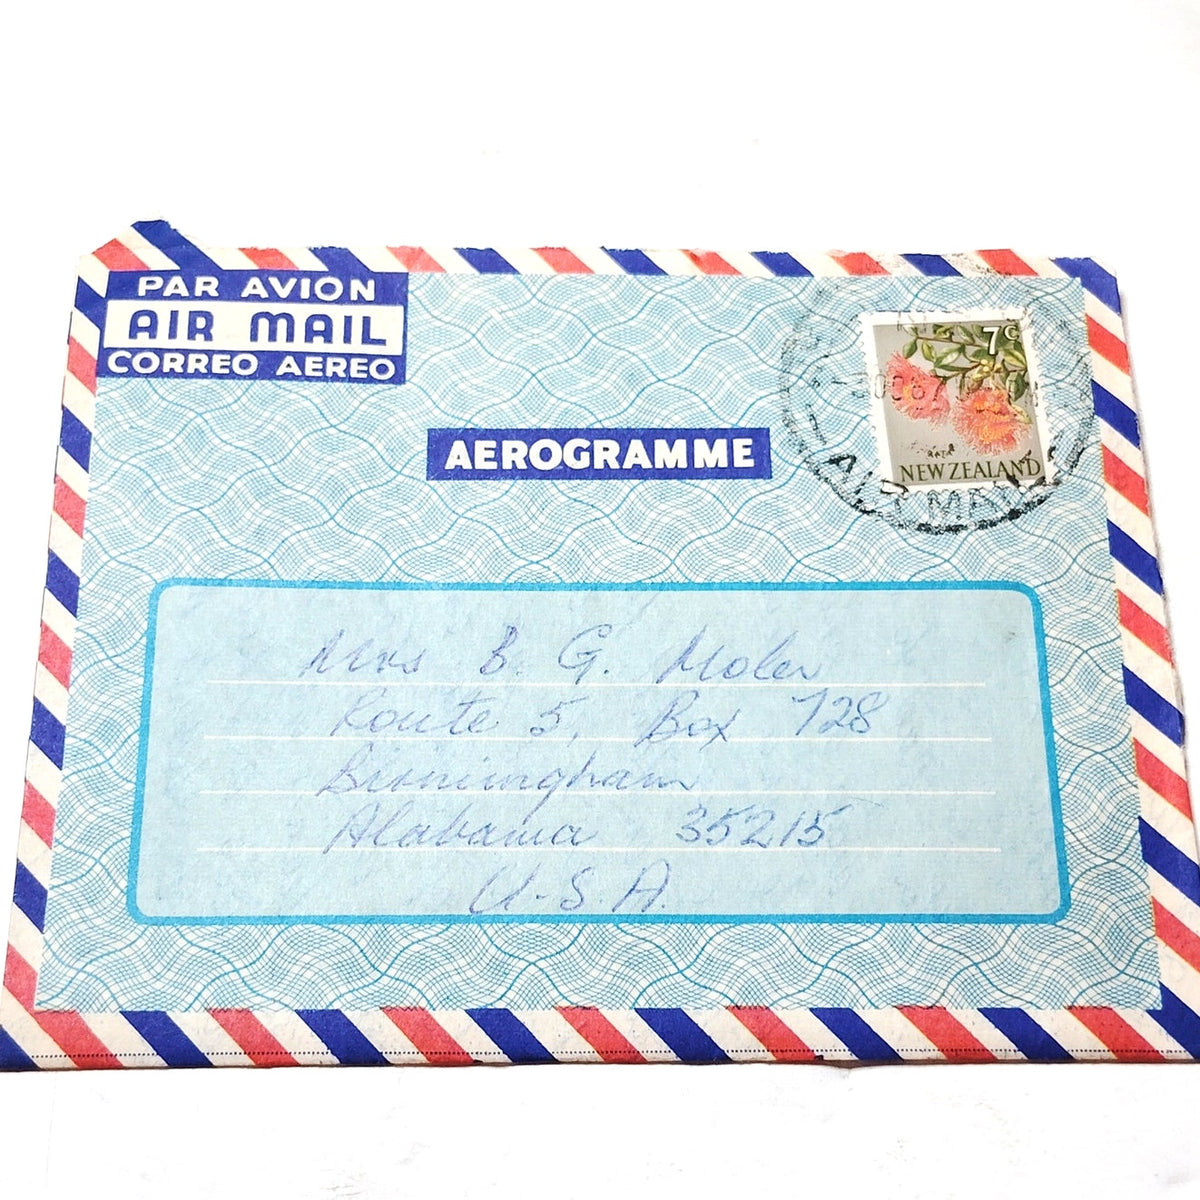 PAR AVION
AIR MAIL
CORREO AEREO
AEROGRAMME
7c
RATA
NEW ZEALAND
AIR MAIL
Mrs B. G. Moler
Route 5, Box 728
Birmingham
Alabama 35215
U.S.A.